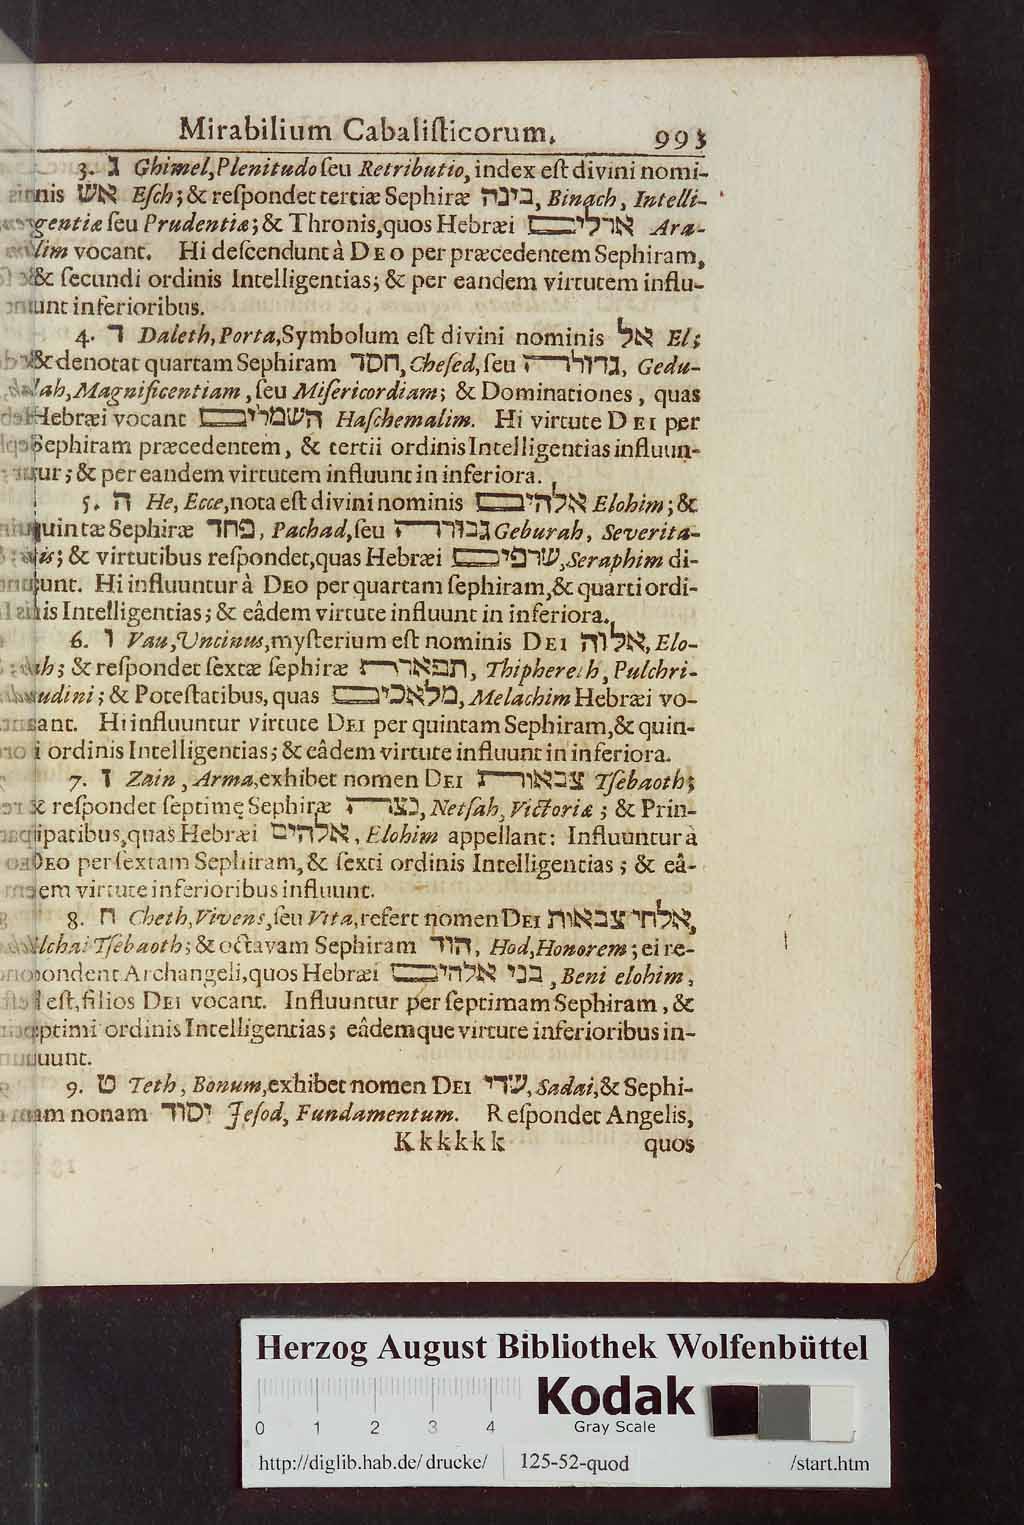 Mirabilium Cabalisticorum. 993
3. ג Ghimel, Plenitudo ſeu Retributio, index eſt divini nomi-
nis אש Eſch; & reſpondet tertiæ Sephiræ בינה, Binach, Intelli-
gentiæ ſeu Prudentiæ; & Thronis, quos Hebræi ארלים Ara-
lim vocant. Hi deſcendunt à DEO per præcedentem Sephiram,
& ſecundi ordinis Intelligentias; & per eandem virtutem influ-
unt inferioribus.
4. ד Daleth, Porta, Symbolum eſt divini nominis אל El;
& denotat quartam Sephiram חסד, Cheſed, ſeu גדולה, Gedu-
lah, Magnificentiam, ſeu Miſericordiam; & Dominationes, quas
Hebræi vocant השמלים Haſchemalim. Hi virtute DEI per
Sephiram præcedentem, & tertii ordinis Intelligentias influun-
tur; & per eandem virtutem influunt in inferiora.
5. ה He, Ecce, nota eſt divini nominis אלהים Elohim; &
quintæ Sephiræ פחד, Pachad, ſeu גבורה Geburah, Severita-
tis; & virtutibus reſpondet, quas Hebræi שרפים, Seraphim di-
cunt. Hi influuntur à DEO per quartam ſephiram, & quarti ordi-
nis Intelligentias; & eâdem virtute influunt in inferiora.
6. ו Vau, Uncinus, myſterium eſt nominis DEI אלוה, Elo-
ah; & reſpondet ſextæ ſephiræ תפארת, Thiphereth, Pulchri-
tudini; & Poteſtatibus, quas מלאכים, Melachim Hebræi vo-
cant. Hi influuntur virtute DEI per quintam Sephiram, & quin-
ti ordinis Intelligentias; & eâdem virtute influunt in inferiora.
7. ז Zain, Arma, exhibet nomen DEI צבאות Tſebaoth;
& reſpondet ſeptimę Sephiræ נצה, Netſah, Victoriæ; & Prin-
cipatibus, quas Hebræi אלהים, Elohim appellant: Influuntur à
DEO per ſextam Sephiram, & ſexti ordinis Intelligentias; & eâ-
dem virtute inferioribus influunt.
8. ח Cheth, Vivens, ſeu Vita, refert nomen DEI אלחי צבאות,
Elchai Tſebaoth; & octavam Sephiram הוד, Hod, Honorem; ei re-
ſpondent Archangeli, quos Hebræi בני אלהים, Beni elohim,
id eſt, filios DEI vocant. Influuntur per ſeptimam Sephiram, &
ſeptimi ordinis Intelligentias; eâdemque virtute inferioribus in-
fluunt.
9. ט Teth, Bonum, exhibet nomen DEI שדי, Sadai, & Sephi-
ram nonam יסוד Jeſod, Fundamentum. Reſpondet Angelis,
Kkkkkk quos
Herzog August Bibliothek Wolfenbüttel
Kodak
Gray Scale
0 1 2 3 4
http://diglib.hab.de/drucke/ 125-52-quod /start.htm